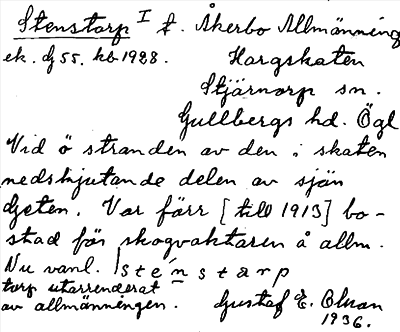 Stenstorp I t. Åkerbo Allmänning
ek. bj 55. kb 1928. Hargskaten
Stjärnorp sn.
Gullbergs hd. Ögl
Vid ö stranden av den i skaten
nedskjutande delen av sjön
Geten. Var förr [till 1913] bo-
stad för skogvaktaren å allm.
Nu vanl. stenstarp
torp utarrenderat
av allmänningen. Gustaf E. Olsson
1936.